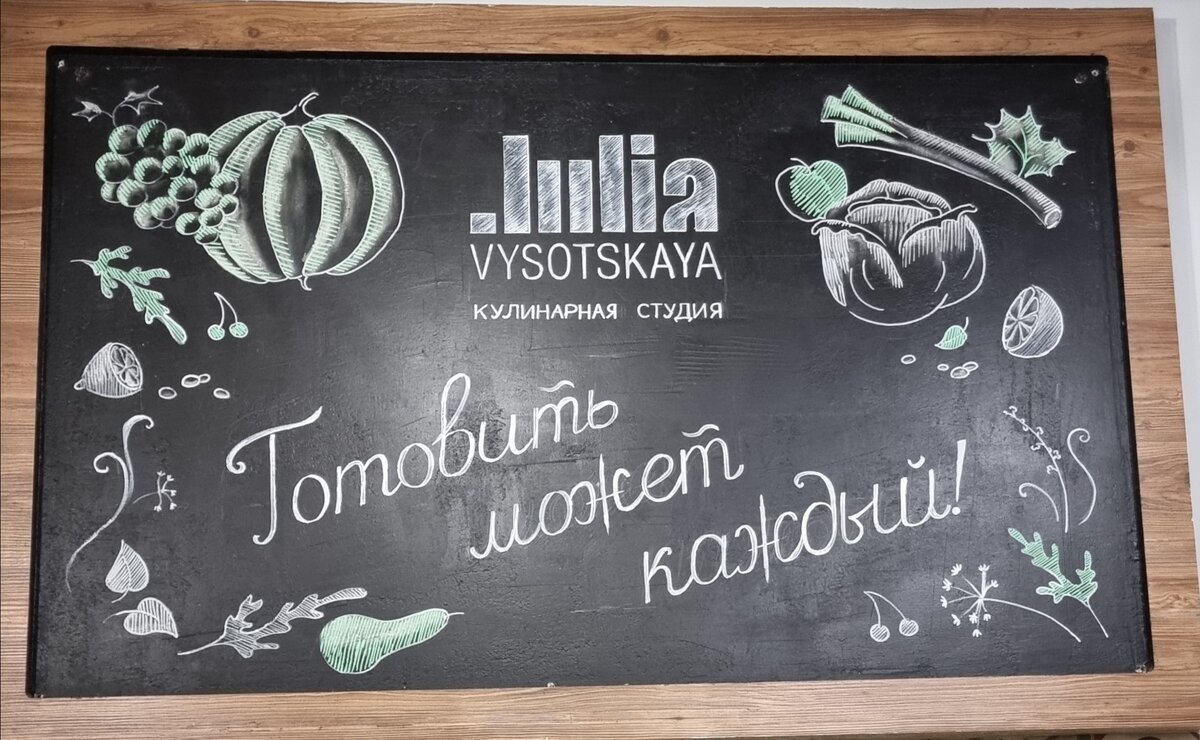 Julia
VYSOTSKAYA
КУЛИНАРНАЯ СТУДИЯ
Готовить
может
каждый!